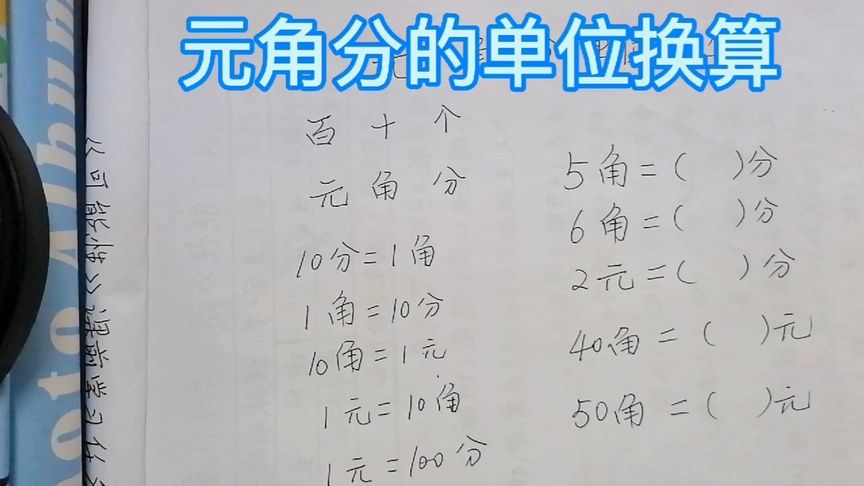 元角分的单位换算
百 十 个
元 角 分
10分=1角
1角=10分
10角=1元
1元=10角
1元=100分
5角=( )分
6角=( )分
2元=( )分
40角=( )元
50角=( )元
《可能性》课前学习任
oto Album